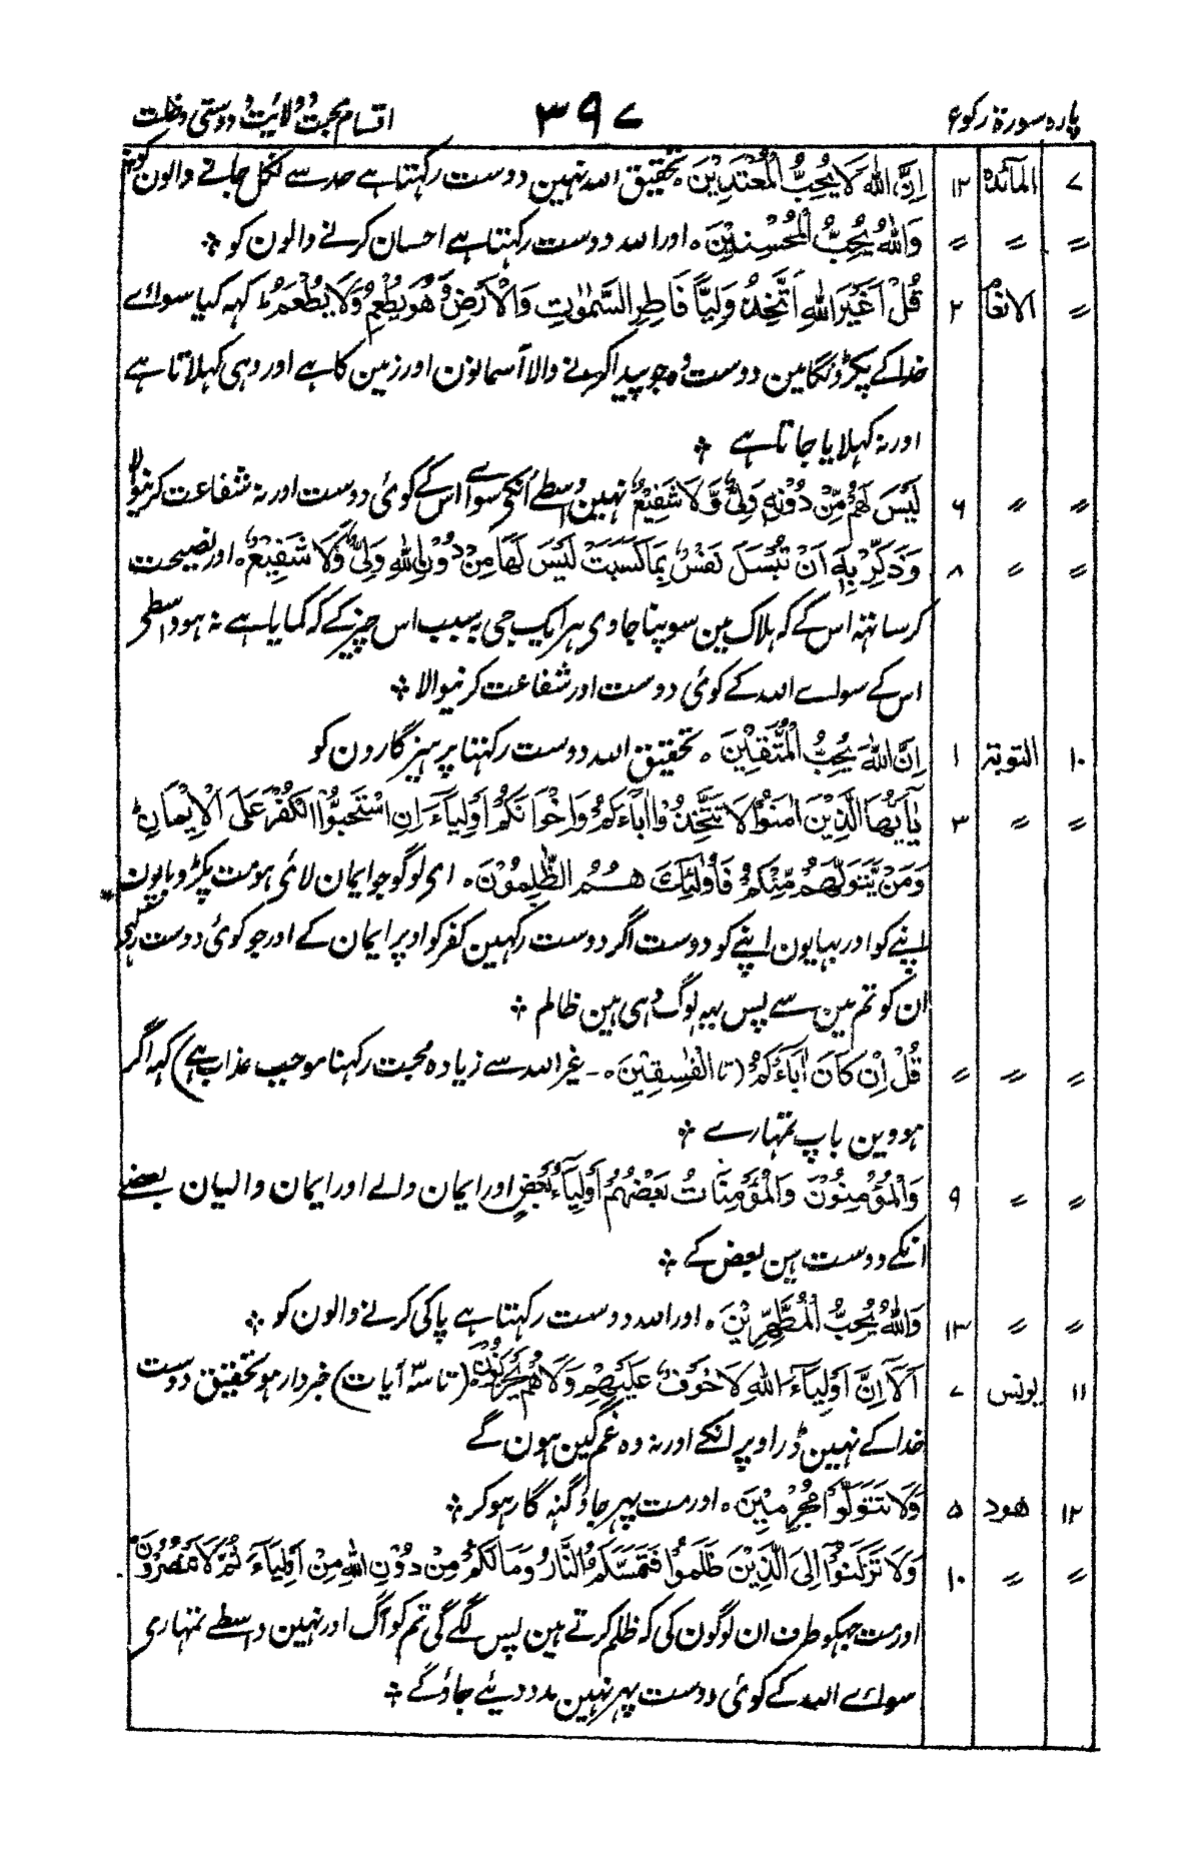 پارہ سورۃ رکوع ۳۹۷ اقسام محبت ولائیت و دوستی و خلت
۷ المآئدہ ۱۲ اِنَّ اللّٰهَ لَا يُحِبُّ الْمُعْتَدِيْنَ ۰ تحقیق اللہ نہین دوست رکہتا ہے حد سے نکل جانے والون کو
〃 〃 〃 وَاللّٰهُ يُحِبُّ الْمُحْسِنِيْنَ ۰ اور اللہ دوست رکہتا ہے احسان کرنے والون کو ۞
〃 الانعام ۲ قُلْ اَغَيْرَ اللّٰهِ اَتَّخِذُ وَلِيًّا فَاطِرِ السَّمٰوٰتِ وَالْاَرْضِ وَهُوَ يُطْعِمُ وَلَا يُطْعَمُ ط کہہ کیا سواے
خدا کے پکڑونگا مین دوست وہ جو پیدا کرنے والا آسمانون اور زمین کا ہے اور وہی کہلاتا ہے
اور نہ کہلایا جاتا ہے ۞
〃 〃 ۶ لَيْسَ لَهُمْ مِّنْ دُوْنِهٖ وَلِيٌّ وَّلَا شَفِيْعٌ نہین واسطے اُنکی سوا اس کے کوئی دوست اور نہ شفاعت کرنیوالا
〃 〃 ۸ وَذَكِّرْ بِهٖ اَنْ تُبْسَلَ نَفْسٌ بِمَا كَسَبَتْ لَيْسَ لَهَا مِنْ دُوْنِ اللّٰهِ وَلِيٌّ وَّلَا شَفِيْعٌ ۰ اور نصیحت
کر ساتہہ اس کے کہ ہلاک مین سوپنا جاوی ہر ایک جی بہ سبب اس چیز کے کہ کمایا ہے نہ ہو واسطی
اس کے سواے اللہ کے کوئی دوست اور شفاعت کرنیوالا ۞
۱۰ التوبۃ ۱ اِنَّ اللّٰهَ يُحِبُّ الْمُتَّقِيْنَ ۰ تحقیق اللہ دوست رکہتا پرہیزگارون کو
〃 〃 ۳ يٰٓاَيُّهَا الَّذِيْنَ اٰمَنُوْا لَا تَتَّخِذُوْٓا اٰبَآءَكُمْ وَاِخْوَانَكُمْ اَوْلِيَآءَ اِنِ اسْتَحَبُّوا الْكُفْرَ عَلَى الْاِيْمَانِ ط
وَمَنْ يَّتَوَلَّهُمْ مِّنْكُمْ فَاُولٰٓئِكَ هُمُ الظّٰلِمُوْنَ ۰ ای لوگو جو ایمان لائی ہو مت پکڑو باپون
اپنے کو اور بہایون اپنے کو دوست اگر دوست رکہین کفر کو اوپر ایمان کے اور جو کوئی دوست رکہے
ان کو تم مین سے پس یہہ لوگ وہی ہین ظالم ۞
〃 〃 〃 قُلْ اِنْ كَانَ اٰبَآؤُكُمْ (تا الْفٰسِقِيْنَ ۰ ۔ غیر اللہ سے زیادہ محبت رکہنا موجب عذاب ہے) کہہ اگر
ہووین باپ تمہارے ۞
〃 〃 ۹ وَالْمُؤْمِنُوْنَ وَالْمُؤْمِنَاتُ بَعْضُهُمْ اَوْلِيَآءُ بَعْضٍ اور ایمان والے اور ایمان والیان بعضے
انکے دوست ہین بعض کے ۞
〃 〃 ۱۳ وَاللّٰهُ يُحِبُّ الْمُطَّهِّرِيْنَ ۰ اور اللہ دوست رکہتا ہے پاکی کرنے والون کو ۞
۱۱ یونس ۷ اَلَآ اِنَّ اَوْلِيَآءَ اللّٰهِ لَا خَوْفٌ عَلَيْهِمْ وَلَا هُمْ يَحْزَنُوْنَ (تا سہ آیات) خبردار ہو تحقیق دوست
خدا کے نہین ڈر اوپر انکے اور نہ وہ غمگین ہون گے
۱۲ ھود ۵ وَلَا تَتَوَلَّوْا مُجْرِمِيْنَ ۰ اور مت پہر جاؤ گنہ گار ہو کر ۞
〃 〃 ۱۰ وَلَا تَرْكَنُوْٓا اِلَى الَّذِيْنَ ظَلَمُوْا فَتَمَسَّكُمُ النَّارُ وَمَا لَكُمْ مِنْ دُوْنِ اللّٰهِ مِنْ اَوْلِيَآءَ ثُمَّ لَا تُنْصَرُوْنَ
اور مت جہکو طرف ان لوگون کی کہ ظلم کرتے ہین پس لگے گی تم کو آگ اور نہین واسطے تمہاری
سواے اللہ کے کوئی دوست پہر نہین مدد دیئے جاؤ گے ۞